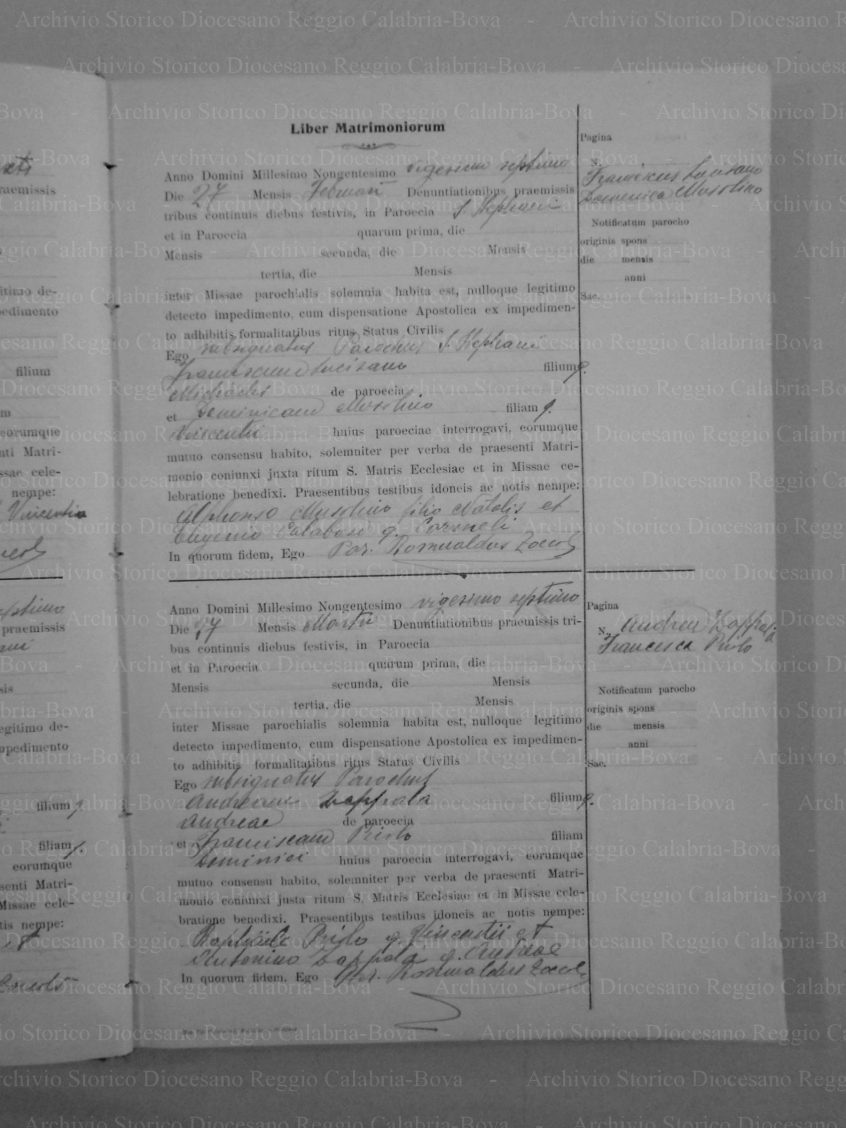 Liber Matrimoniorum
Anno Domini Millesimo Nongentesimo vigesimo septimo
Die 27 Mensis Februarii Denuntiationibus praemissis
tribus continuis diebus festivis, in Paroecia S. Stephani
et in Paroecia quarum prima, die
Mensis secunda, die Mensis
tertia, die Mensis
inter Missae parochialis solemnia habita est, nulloque legitimo
detecto impedimento, cum dispensatione Apostolica ex impedimen-
to adhibitis formalitatibus ritus Status Civilis
Ego subsignatus Parochus S. Stephani
Franciscum Lucisano filium q.
Michaelis de paroecia
et Dominicam Musolino filiam q.
Vincentii huius paroeciae interrogavi, eorumque
mutuo consensu habito, solemniter per verba de praesenti Matri-
monio coniunxi juxta ritum S. Matris Ecclesiae et in Missae ce-
lebratione benedixi. Praesentibus testibus idoneis ac notis nempe:
Alphonso Musolino filio Natalis et
Eugenio Calabrò q.
In quorum fidem, Ego Par. Romualdus
Pagina
N.
Franciscus Lucisano
Domenica Musolino
Notificatum parocho
originis spons
die mensis
anni
Sac.
Anno Domini Millesimo Nongentesimo vigesimo septimo
Die Mensis Martii Denuntiationibus praemissis tri-
bus continuis diebus festivis, in Paroecia
et in Paroecia quarum prima, die
Mensis secunda, die Mensis
tertia, die Mensis
inter Missae parochialis solemnia habita est, nulloque legitimo
detecto impedimento, cum dispensatione Apostolica ex impedimen-
to adhibitis formalitatibus ritus Status Civilis
Ego subsignatus Parochus
Andream Zappala filium q.
Andreae de paroecia
et Franciscam Priolo filiam
Dominici huius paroecia interrogavi, eorumque
mutuo consensu habito, solemniter per verba de praesenti Matri-
monio coniunxi justa ritum S. Matris Ecclesiae et in Missae cele-
bratione benedixi. Praesentibus testibus idoneis ac notis nempe:
Priolo q. Vincentii et
Antonino Zappala q. Andreae
In quorum fidem, Ego Par. Romualdus
Pagina
N. Andrea
Francesca Priolo
Notificatum parocho
originis spons
die mensis
anni
Sac.
Archivio Storico Diocesano Reggio Calabria-Bova